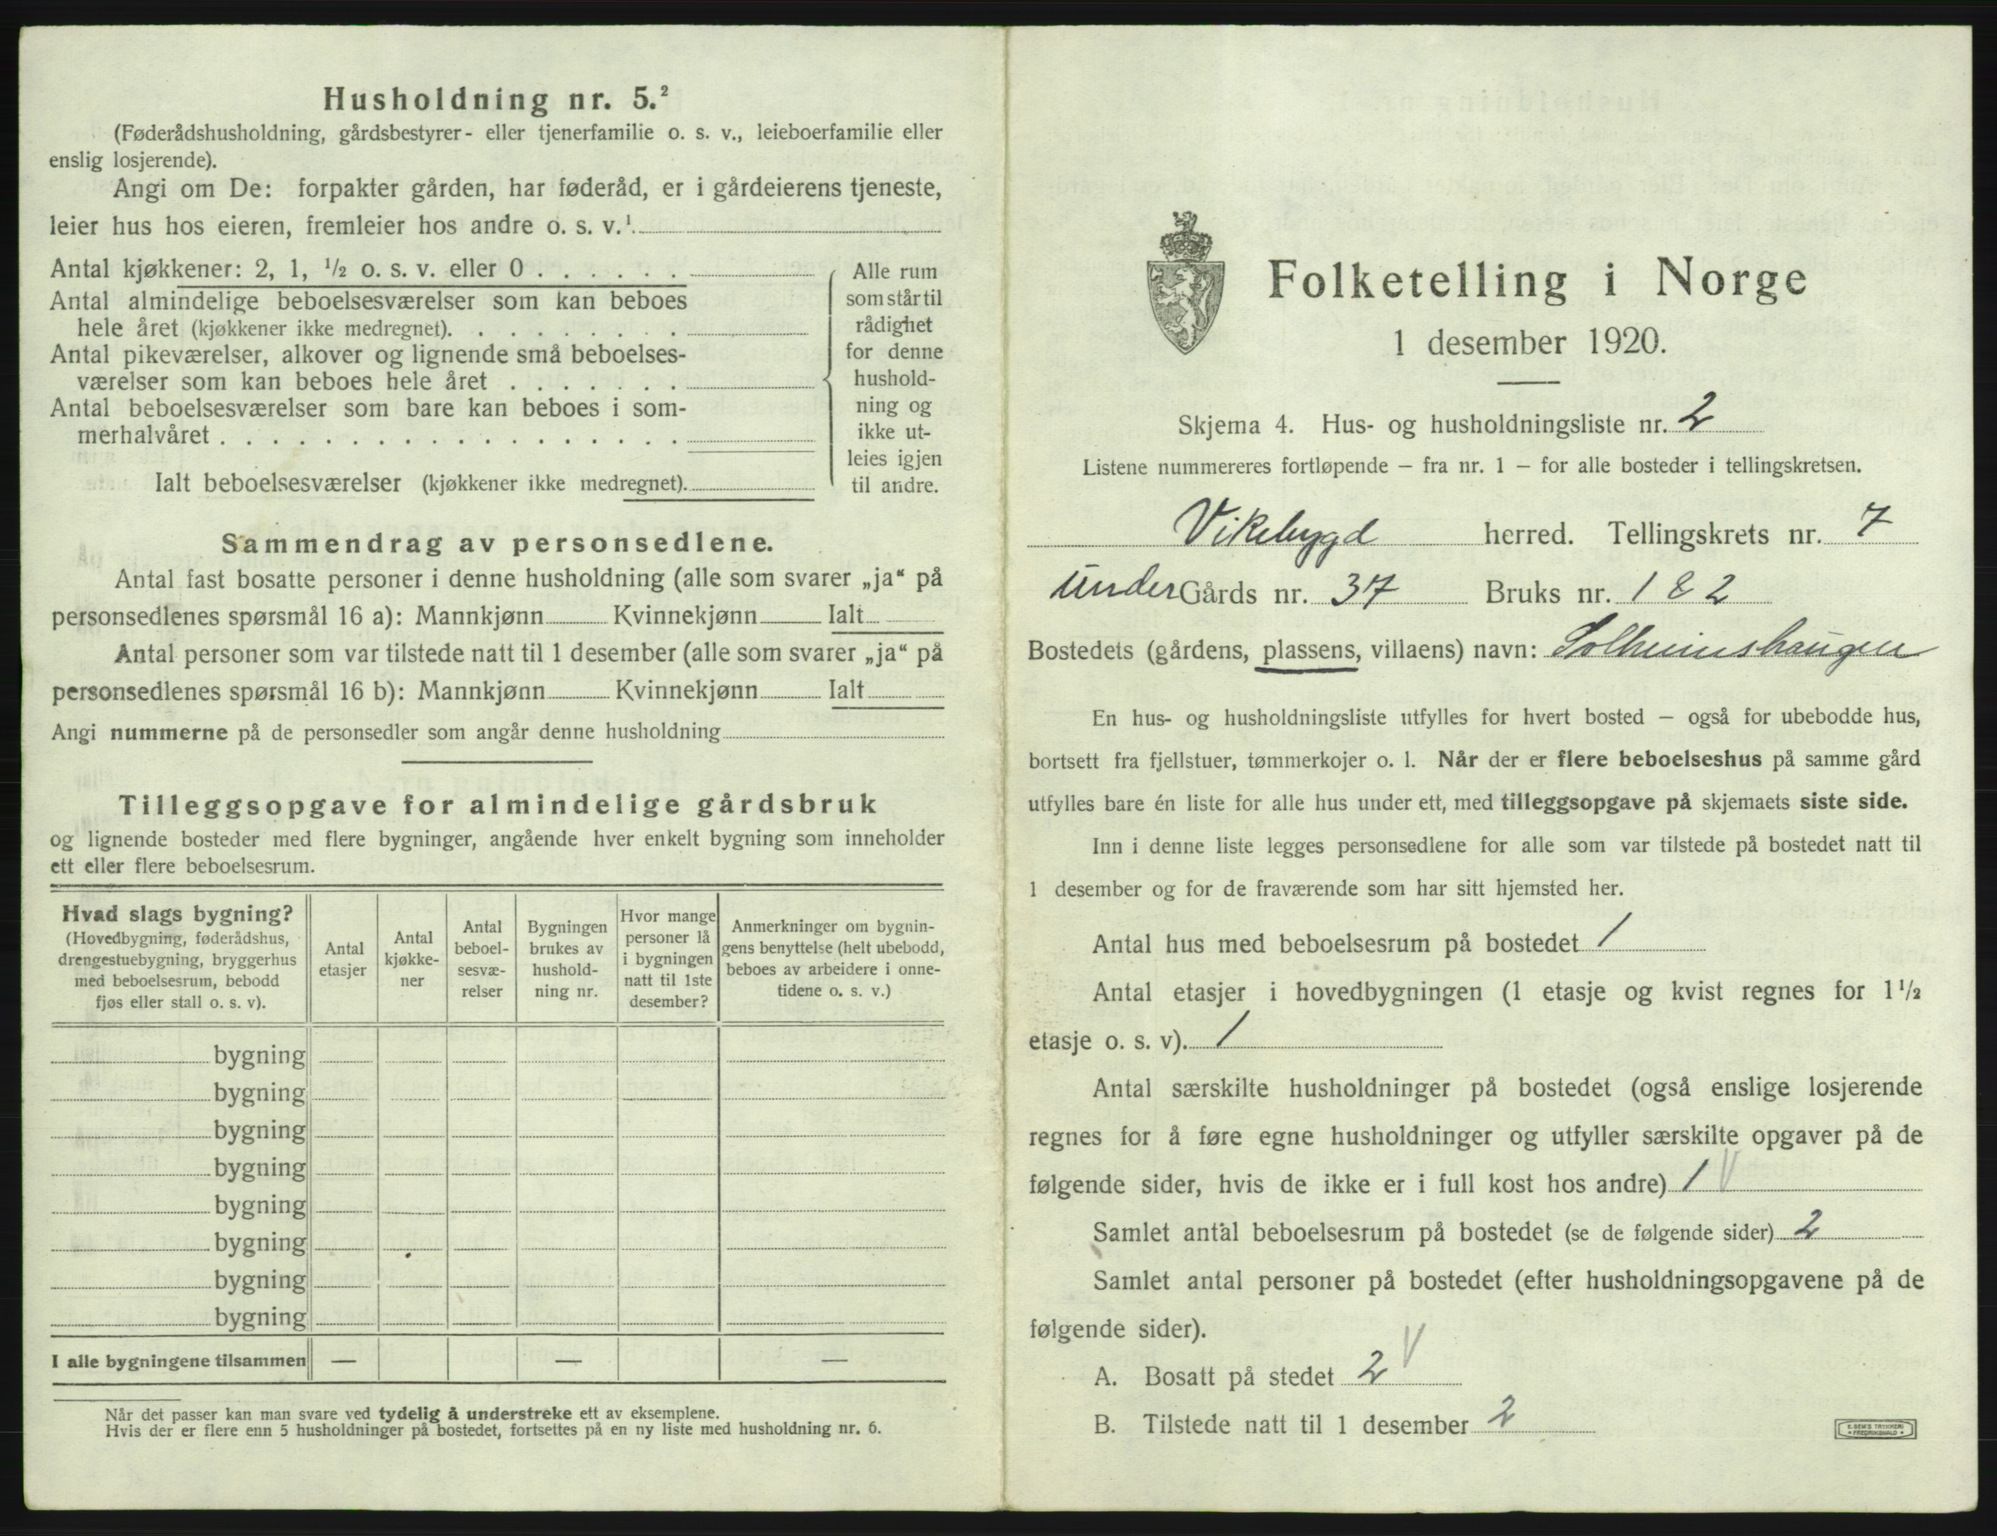 Husholdning nr. 5.²
(Føderådshusholdning, gårdsbestyrer- eller tjenerfamilie o. s. v., leieboerfamilie eller
enslig losjerende).
Angi om De: forpakter gården, har føderåd, er i gårdeierens tjeneste,
leier hus hos eieren, fremleier hos andre o. s. v.¹
Antal kjøkkener: 2, 1, ½ o. s. v. eller 0 . . . . . .
Antal almindelige beboelsesværelser som kan beboes
hele året (kjøkkener ikke medregnet). . . . . . . . .
Antal pikeværelser, alkover og lignende små beboelses-
værelser som kan beboes hele året . . . . . . .
Antal beboelsesværelser som bare kan beboes i som-
merhalvåret . . . . . . . . . . . . . . . . . .
Ialt beboelsesværelser (kjøkkener ikke medregnet).
Alle rum
som står til
rådighet
for denne
hushold-
ning og
ikke ut-
leies igjen
til andre.
Sammendrag av personsedlene.
Antal fast bosatte personer i denne husholdning (alle som svarer „ja“ på
personsedlenes spørsmål 16 a): Mannkjønn Kvinnekjønn Ialt
Antal personer som var tilstede natt til 1 desember (alle som svarer „ja“ på
personsedlenes spørsmål 16 b): Mannkjønn Kvinnekjønn Ialt
Angi nummerne på de personsedler som angår denne husholdning
Tilleggsopgave for almindelige gårdsbruk
og lignende bosteder med flere bygninger, angående hver enkelt bygning som inneholder
ett eller flere beboelsesrum.
Hvad slags bygning?
(Hovedbygning, føderådshus,
drengestuebygning, bryggerhus
med beboelsesrum, bebodd
fjøs eller stall o. s. v).
Antal
etasjer
Antal
kjøkke-
ner
Antal
beboel-
sesvæ-
relser
Bygningen
brukes av
hushold-
ning nr.
Hvor mange
personer lå
i bygningen
natt til 1ste
desember?
Anmerkninger om bygnin-
gens benyttelse (helt ubebodd,
beboes av arbeidere i onne-
tidene o. s. v.)
bygning
bygning
bygning
bygning
bygning
bygning
bygning
bygning
I alle bygningene tilsammen — — —
Når det passer kan man svare ved tydelig å understreke ett av eksemplene.
Hvis der er flere enn 5 husholdninger på bostedet, fortsettes på en ny liste med husholdning nr. 6.
Folketelling i Norge
1 desember 1920.
Skjema 4. Hus- og husholdningsliste nr. 2
Listene nummereres fortløpende – fra nr. 1 – for alle bosteder i tellingskretsen.
Vikebygd herred. Tellingskrets nr. 7
under Gårds nr. 37 Bruks nr. 1 & 2
Bostedets (gårdens, plassens, villaens) navn: Solheimshaugen
En hus- og husholdningsliste utfylles for hvert bosted – også for ubebodde hus,
bortsett fra fjellstuer, tømmerkojer o. l. Når der er flere beboelseshus på samme gård
utfylles bare én liste for alle hus under ett, med tilleggsopgave på skjemaets siste side.
Inn i denne liste legges personsedlene for alle som var tilstede på bostedet natt til
1 desember og for de fraværende som har sitt hjemsted her.
Antal hus med beboelsesrum på bostedet 1
Antal etasjer i hovedbygningen (1 etasje og kvist regnes for 1½
etasje o. s. v). 1
Antal særskilte husholdninger på bostedet (også enslige losjerende
regnes for å føre egne husholdninger og utfyller særskilte opgaver på de
følgende sider, hvis de ikke er i full kost hos andre) 1 V
Samlet antal beboelsesrum på bostedet (se de følgende sider) 2
Samlet antal personer på bostedet (efter husholdningsopgavene på de
følgende sider).
A. Bosatt på stedet 2 V
B. Tilstede natt til 1 desember 2